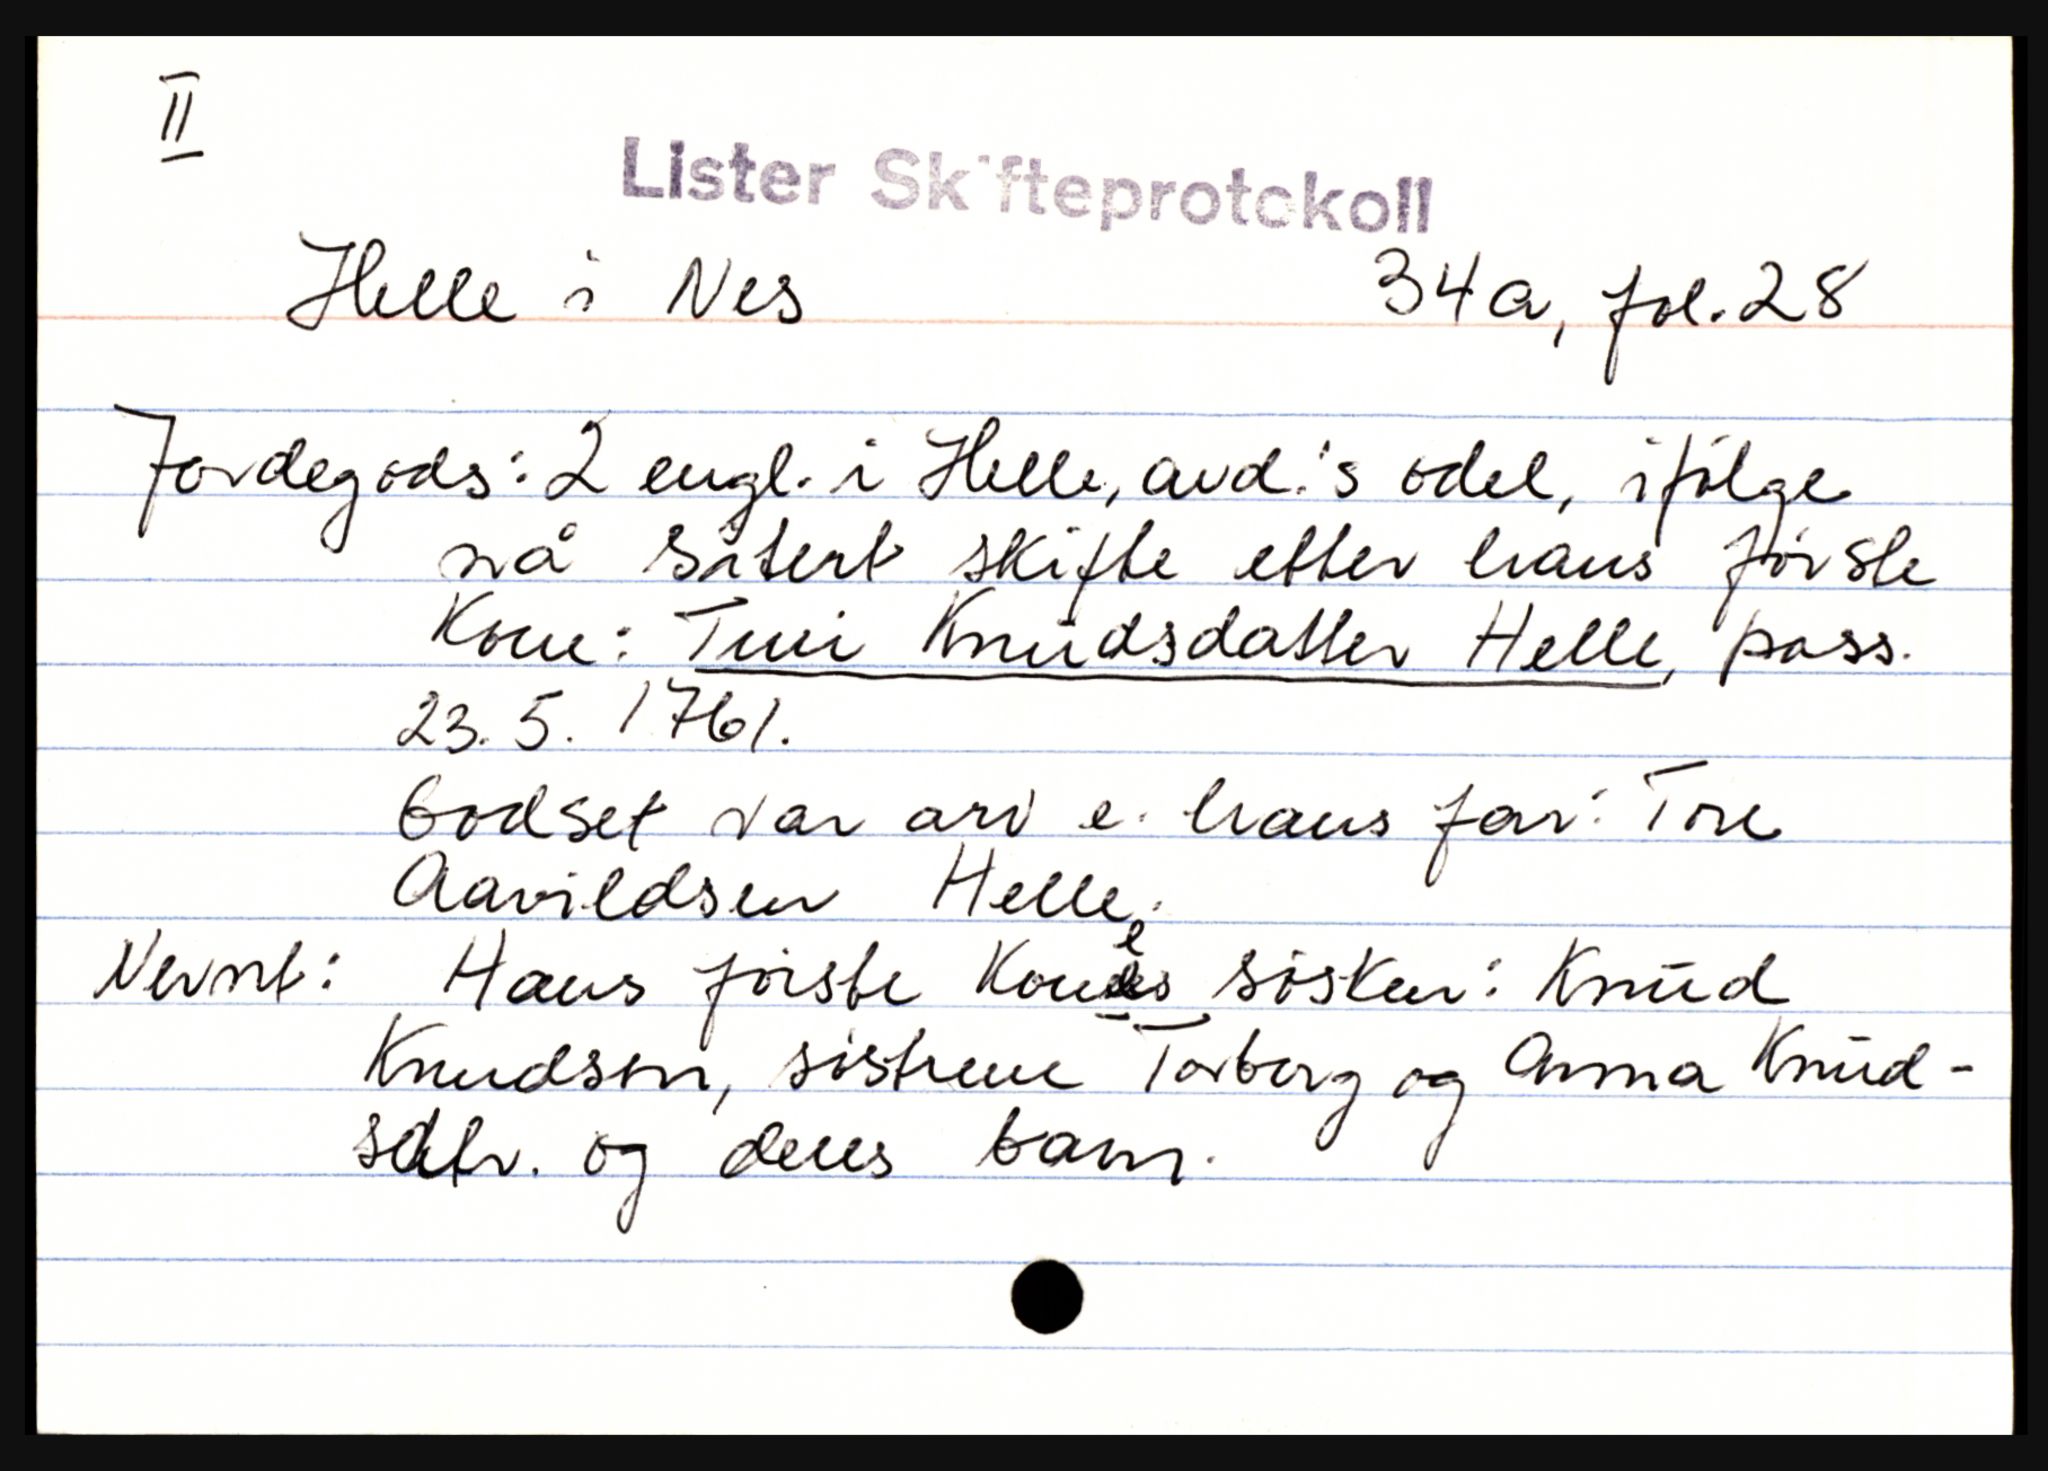 II
Lister Skifteprotokoll
Helle i Nes 34a, fol. 28
Jordegods: 2 engl. i Helle, avd.'s odel, ifølge
nå sitert skifte etter hans første
Kone: Turi Knudsdatter Helle, pass.
23. 5. 1761.
Godset var arv e. hans far: Tore
Aavildsen Helle.
Nevnt: Hans første Kones søsken: Knud
Knudsen, søstrene Torborg og Anna Knud-
sdtr. og deres barn.